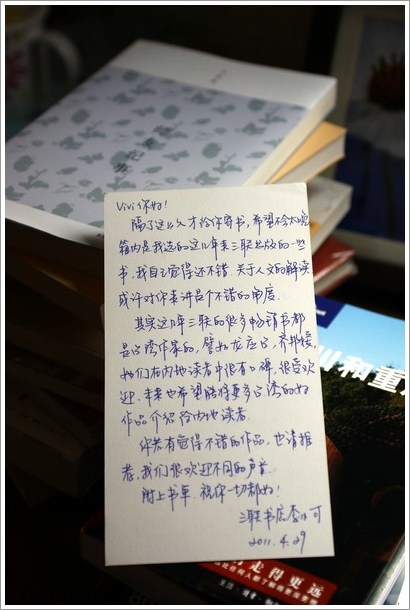 Vivi 你好!
隔了这么久才给你寄书,希望不会太晚
箱内是我选的这几年来三联出版的一些
书,我自己觉得还不错 关于人文的解读
或许对你来讲是个不错的角度.
其实这几年三联的很多畅销书都
是台湾作家的,譬如龙应台,齐邦媛,
她们在内地读者中很有口碑,很受欢
迎,未来也希望能将更多台湾的好
作品介绍给内地读者.
你若有觉得不错的作品,也请推
荐,我们很欢迎不同的声音.
附上书单 祝你一切都好!
三联书店 李 可
2011.4.29
川和重
走得更远